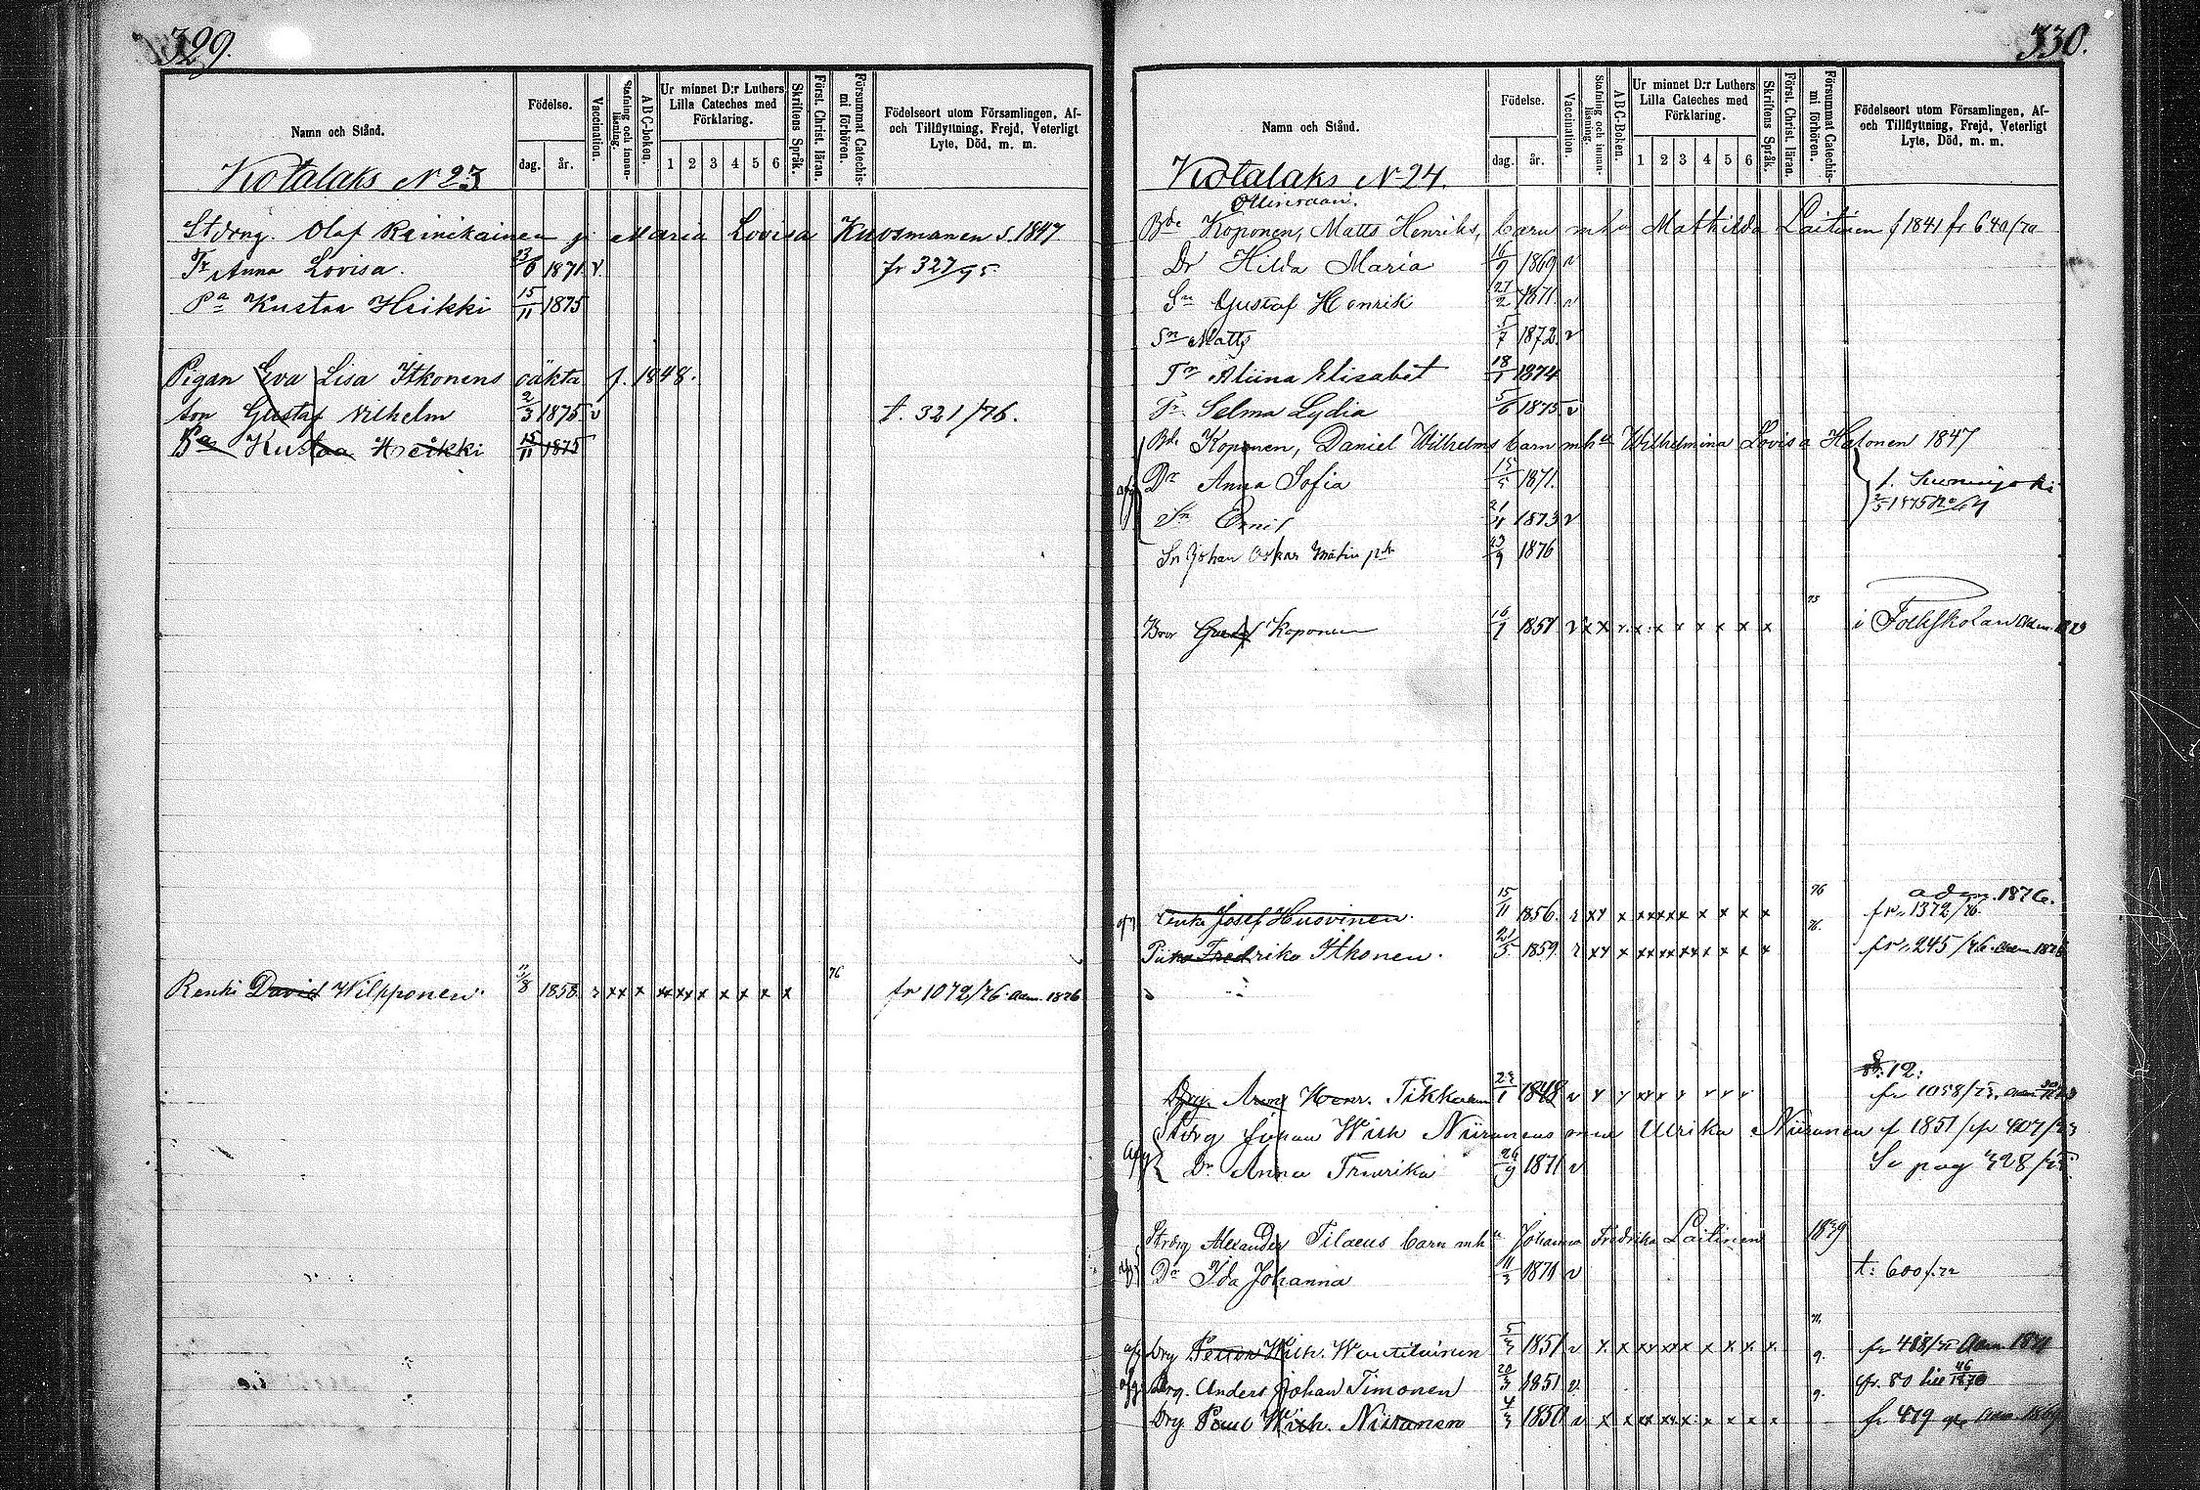 329.
Namn och Stånd.
Födelse.
dag. år.
Vaccination.
Stafning och innan-läsning.
ABC-boken.
Ur minnet D:r Luthers Lilla Cateches med Förklaring.
1 2 3 4 5 6
Skriftens Språk.
Först. Christ. läran.
Försummat Catechis-mi förhören.
Födelseort utom Församlingen, Af- och Tillflyttning, Frejd, Veterligt Lyte, Död, m. m.
Kotalaks N 23
Storng. Olof Reinikainen Maria Lovisa Kuosmanen 1847
Tr Anna Lovisa. 1871 v. fr 327/75
Pa Kustaa Heikki 15/11 1875
Pigan Eva Lisa Itkonens oäkta f. 1848.
son Gustaf Vilhelm 2/3 1875 v t. 321/76.
Pa Kustaa Heikki 15/11 1875
Renki David Wilpponen. 1858 x x x x x x x x x x 76 fr 1072/76 adm. 1876
330.
Namn och Stånd.
Födelse.
dag. år.
Vaccination.
Stafning och innan-läsning.
ABC-Boken.
Ur minnet D:r Luthers Lilla Cateches med Förklaring.
1 2 3 4 5 6
Skriftens Språk.
Först. Christ. läran.
Försummat Catechis-mi förhören.
Födelseort utom Församlingen, Af- och Tillflyttning, Frejd, Veterligt Lyte, Död, m. m.
Kotalaks N 24.
Bde Koponen, Matts Henriks, barn mhu Mathilda Laitinen f 1841 fr 640/70
Dr Hilda Maria 16/9 1869 v
Sn Gustaf Henrik 27/2 1871. v
Sn Matts 5/7 1872 v
Tr Aliina Elisabet 18/1 1874
Tr Selma Lydia 5/6 1875 v
Bde Koponen, Daniel Wilhelms barn mhu Wilhelmina Lovisa Halonen 1847
Dr Anna Sofia 1871.
Sn Emil 21/11 1873 v
Sn Johan Oskar 1876
Bror Gustaf Koponen 16/1 1857 v x x x x x x x x x 75 i Folkskolan
Renki Josef Huovinen. 15/11 1856. x x x x x x x x x 76 adm. 1876.
fr. 1372/76.
Piika Fredrika Itkonen. 21/5 1859. x x x x x x x x x 76. fr. 245/76. adm. 1876
Drg. Henr. Tikkanen 23/1 1848 v fr 1058/73.
Stdrg Johan Wilh Niiranens Ulrika Niiranen f 1851
Dr Anna Fredrika 26/9 1871 v Se pag 328/75
Stdrg Alexander Tilaeus barn mhu Johanna Fredrika Laitinen 1839
Dr Ida Johanna 11/3 1871 v t: 600/72
Drg Petter Wilh. Woutilainen 5/3 1851 v x x x x x x x x x fr 418/71 Adm 1871
Drg. Anders Johan Timonen 20/3 1851 v fr. 80
Drg Paul Wilh. Niiranen 4/3 1850 v x x x x x x x x fr 479